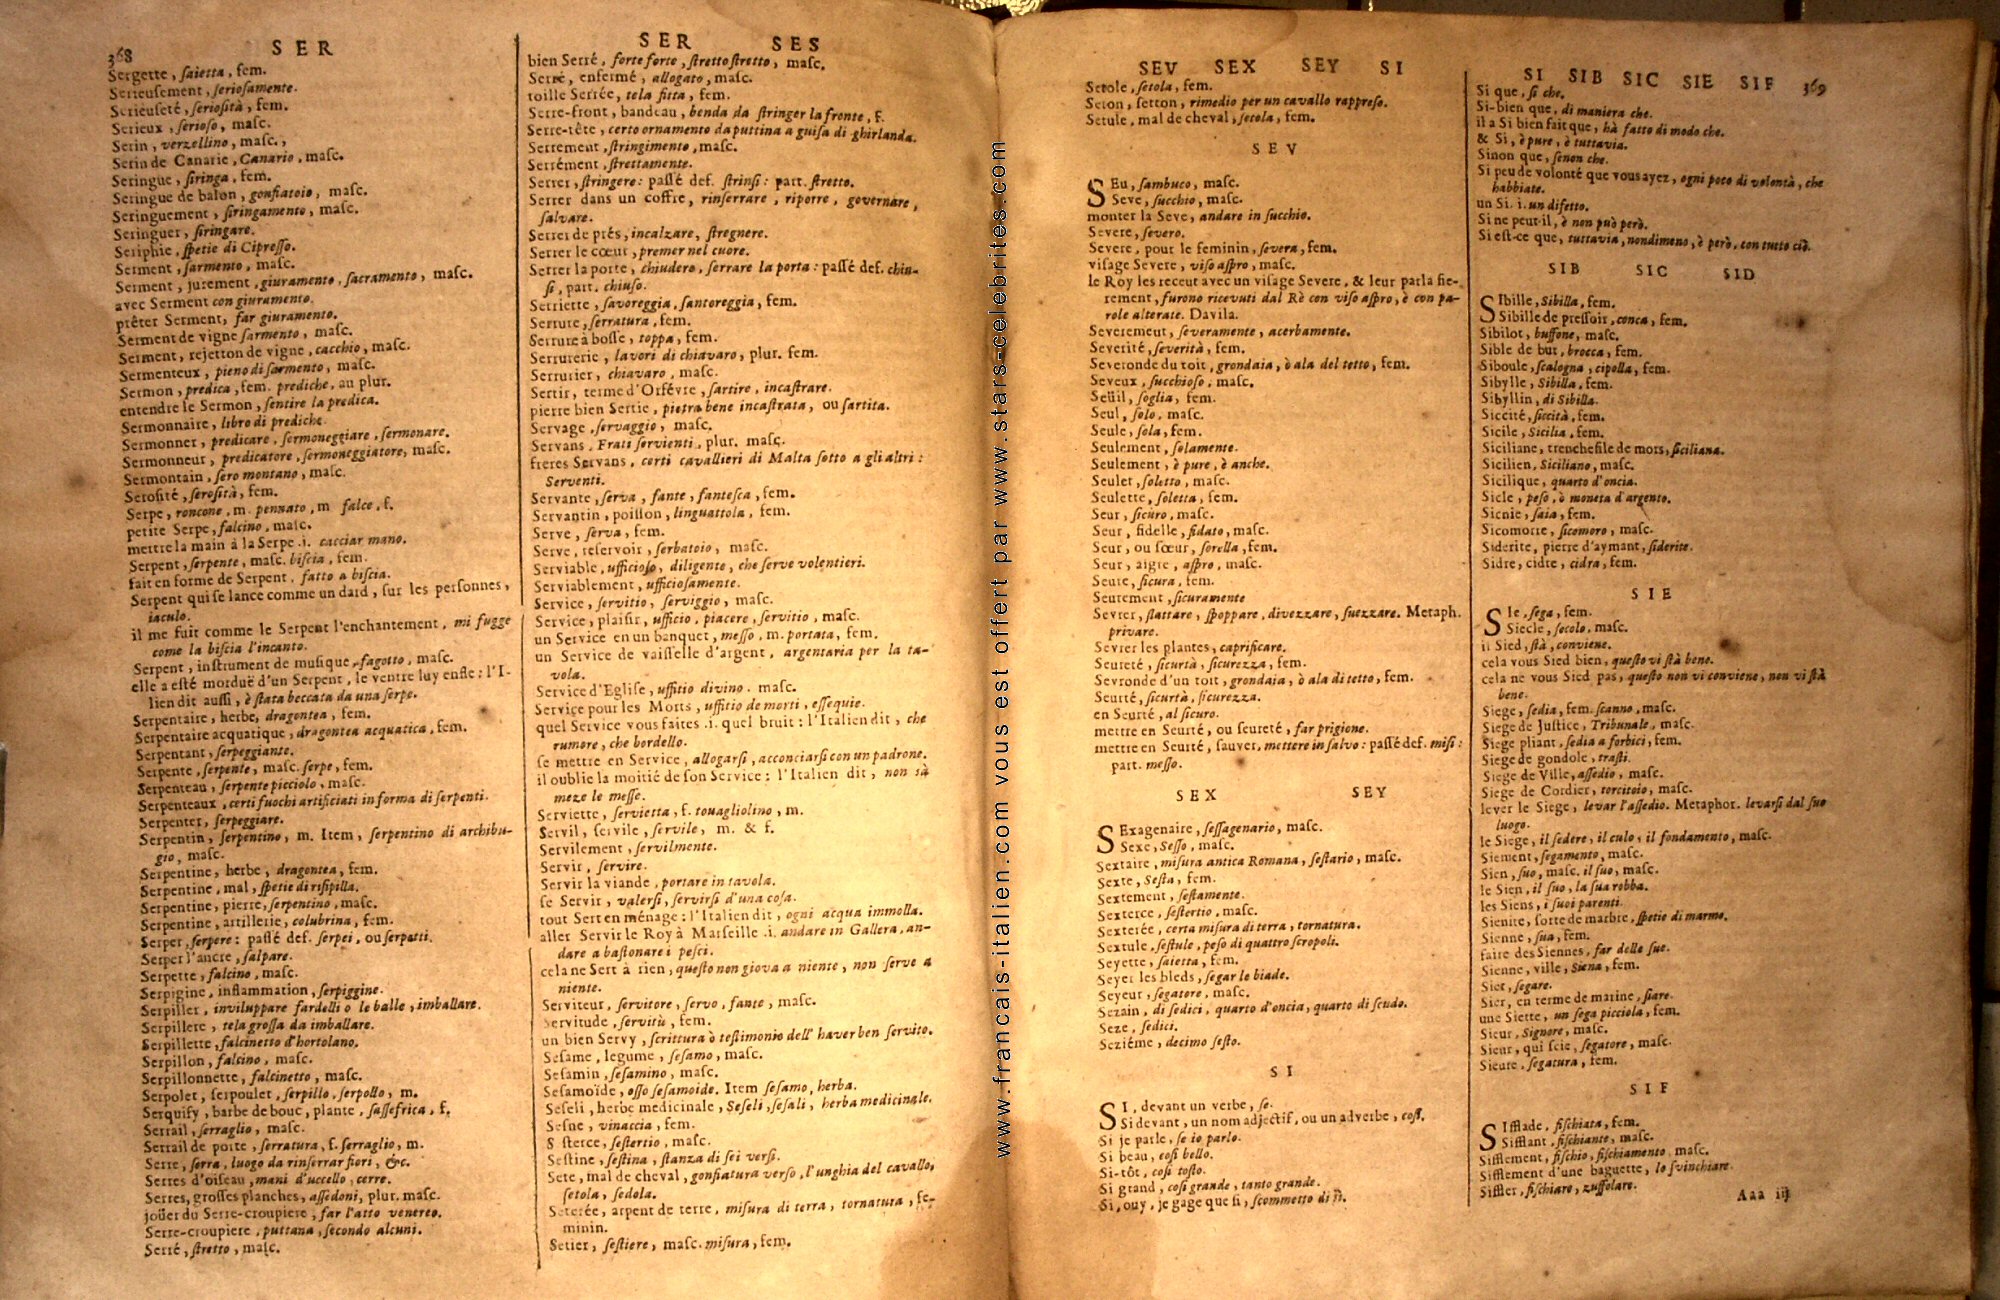 368 SER
Sergette, ſaietta, fem.
Serieuſement, ſerioſamente.
Serieuſeté, ſerioſità, fem.
Serieux, ſerioſo, maſc.
Serin, verzellino, maſc.,
Serin de Canarie, Canario, maſc.
Seringue, ſiringa, fem.
Seringue de balon, gonfiatoio, maſc.
Seringuement, ſiringamento, maſc.
Seringuer, ſiringare.
Seriphie, ſpetie di Cipreſſo.
Serment, ſarmento, maſc.
Serment, jurement, giuramento, ſacramento, maſc.
avec Serment con giuramento.
prêter Serment, far giuramento.
Serment de vigne ſarmento, maſc.
Serment, rejetton de vigne, cacchio, maſc.
Sermenteux, pieno di ſarmento, maſc.
Sermon, predica, fem. prediche, au plur.
entendre le Sermon, ſentire la predica.
Sermonnaire, libro di prediche.
Sermonner, predicare, ſermoneggiare, ſermonare.
Sermonneur, predicatore, ſermoneggiatore, maſc.
Sermontain, ſero montano, maſc.
Seroſité, ſeroſità, fem.
Serpe, roncone, m. pennato, m falce, f.
petite Serpe, falcino, maſc.
mettre la main à la Serpe .i. cacciar mano.
Serpent, ſerpente, maſc. biſcia, fem.
fait en forme de Serpent, fatto a biſcia.
Serpent qui ſe lance comme un dard, ſur les perſonnes,
iaculo.
il me fuit comme le Serpent l'enchantement, mi fugge
come la biſcia l'incanto.
Serpent, inſtrument de muſique, fagotto, maſc.
elle a eſté morduë d'un Serpent, le ventre luy enfle: l'I-
lien dit auſſi, è ſtata beccata da una ſerpe.
Serpentaire, herbe, dragontea, fem.
Serpentaire acquatique, dragontea acquatica, fem.
Serpentant, ſerpeggiante.
Serpente, ſerpente, maſc. ſerpe, fem.
Serpenteau, ſerpente picciolo, maſc.
Serpenteaux, certi fuochi artificiati in forma di ſerpenti.
Serpenter, ſerpeggiare.
Serpentin, ſerpentino, m. Item, ſerpentino di archibu-
gio, maſc.
Serpentine, herbe, dragontea, fem.
Serpentine, mal, ſpetie di riſipilla.
Serpentine, pierre, ſerpentino, maſc.
Serpentine, artillerie, colubrina, fem.
Serper, ſerpere: paſſé def. ſerpei, ou ſerpetti.
Serper l'ancre, ſalpare.
Serpette, falcino, maſc.
Serpigine, inflammation, ſerpiggine.
Serpiller, inviluppare fardelli o le balle, imballare.
Serpillere, tela groſſa da imballare.
Serpillette, falcinetto d'hortolano.
Serpillon, falcino, maſc.
Serpillonnette, falcinetto, maſc.
Serpolet, ſerpoulet, ſerpillo, ſerpollo, m.
Serquify, barbe de bouc, plante, ſaſſefrica, f.
Serrail, ſerraglio, maſc.
Serrail de porte, ſerratura, f. ſerraglio, m.
Serre, ſerra, luogo da rinſerrar fiori, &c.
Serres d'oiſeau, mani d'uccello, cerre.
Serres, groſſes planches, aſſedoni, plur. maſc.
joüer du Serre-croupiere, far l'atto venereo.
Serre-croupiere, puttana, ſecondo alcuni.
Serré, ſtretto, maſc.
SER SES
bien Serré, forte forte, ſtretto ſtretto, maſc.
Serré, enfermé, allogato, maſc.
toille Serrée, tela fitta, fem.
Serre-front, bandeau, benda da ſtringer la fronte, f.
Serre-tête, certo ornamento da puttina a guiſa di ghirlanda.
Serrement, ſtringimento, maſc.
Serrément, ſtrettamente.
Serrer, ſtringere: paſſé def. ſtrinſi: part. ſtretto.
Serrer dans un coffre, rinſerrare, riporre, governare,
ſalvare.
Serrer de prés, incalzare, ſtregnere.
Serrer le cœur, premer nel cuore.
Serrer la porte, chiudere, ſerrare la porta: paſſé def. chiu-
ſi, part. chiuſo.
Serriette, ſavoreggia, ſantoreggia, fem.
Serrure, ſerratura, fem.
Serrure à boſſe, toppa, fem.
Serrurerie, lavori di chiavaro, plur. fem.
Serrurier, chiavaro, maſc.
Sertir, terme d'Orfévre, ſartire, incaſtrare.
pierre bien Sertie, pietra bene incaſtrata, ou ſartita.
Servage, ſervaggio, maſc.
Servans, Frati ſervienti, plur. maſc.
freres Servans, certi cavallieri di Malta ſotto a gli altri:
Serventi.
Servante, ſerva, fante, fanteſca, fem.
Servantin, poiſſon, linguattola, fem.
Serve, ſerva, fem.
Serve, reſervoir, ſerbatoio, maſc.
Serviable, ufficioſo, diligente, che ſerve volentieri.
Serviablement, ufficioſamente.
Service, ſervitio, ſerviggio, maſc.
Service, plaiſir, ufficio, piacere, ſervitio, maſc.
un Service en un banquet, meſſo, m. portata, fem.
un Service de vaiſſelle d'argent, argentaria per la ta-
vola.
Service d'Egliſe, uffitio divino. maſc.
Service pour les Morts, uffitio de morti, eſſequie.
quel Service vous faites .i. quel bruit: l'Italien dit, che
rumore, che bordello.
ſe mettre en Service, allogarſi, acconciarſi con un padrone.
il oublie la moitié de ſon Service: l'Italien dit, non sà
meze le meſſe.
Serviette, ſervietta, f. touagliolino, m.
Servil, ſervile, ſervile, m. & f.
Servilement, ſervilmente.
Servir, ſervire.
Servir la viande, portare in tavola.
ſe Servir, valerſi, ſervirſi d'una coſa.
tout Sert en ménage: l'Italien dit, ogni acqua immolla.
aller Servir le Roy à Marſeille .i. andare in Gallera, an-
dare a baſtonare i peſci.
cela ne Sert à rien, queſto non giova a niente, non ſerve a
niente.
Serviteur, ſervitore, ſervo, fante, maſc.
Servitude, ſervitù, fem.
un bien Servy, ſcrittura ò teſtimonio dell' haver ben ſervito.
Seſame, legume, ſeſamo, maſc.
Seſamin, ſeſamino, maſc.
Seſamoïde, oſſo ſeſamoide. Item ſeſamo, herba.
Seſeli, herbe medicinale, Seſeli, ſeſali, herba medicinale.
Seſne, vinaccia, fem.
S ſterce, ſeſtertio, maſc.
Seſtine, ſeſtina, ſtanza di ſei verſi.
Sete, mal de cheval, gonfiatura verſo, l'unghia del cavallo,
ſetola, ſedola.
Seterée, arpent de terre, miſura di terra, tornatura, fe-
minin.
Setier, ſeſtiere, maſc. miſura, fem.
www.francais-italien.com vous est offert par www.stars-celebrites.com
SEV SEX SEY SI
Setole, ſetola, fem.
Seton, ſetton, rimedio per un cavallo rappreſo.
Setule, mal de cheval, ſetola, fem.
SEV
SEu, ſambuco, maſc.
Seve, ſucchio, maſc.
monter la Seve, andare in ſucchio.
Severe, ſevero.
Severe, pour le feminin, ſevera, fem.
viſage Severe, viſo aſpro, maſc.
le Roy les receut avec un viſage Severe, & leur parla fie-
rement, furono ricevuti dal Rè con viſo aſpro, è con pa-
role alterate. Davila.
Severemeut, ſeveramente, acerbamente.
Severité, ſeverità, fem.
Severonde du toit, grondaia, ò ala del tetto, fem.
Seveux, ſucchioſo, maſc.
Seüil, ſoglia, fem.
Seul, ſolo, maſc.
Seule, ſola, fem.
Seulement, ſolamente.
Seulement, è pure, è anche.
Seulet, ſoletto, maſc.
Seulette, ſoletta, fem.
Seur, ſicuro, maſc.
Seur, fidelle, fidato, maſc.
Seur, ou ſœur, ſorella, fem.
Seur, aigre, aſpro, maſc.
Seure, ſicura, fem.
Seurement, ſicuramente
Sevrer, ſlattare, ſpoppare, divezzare, ſuezzare. Metaph.
privare.
Sevrer les plantes, caprificare.
Seureté, ſicurtà, ſicurezza, fem.
Sevronde d'un toit, grondaia, ò ala di tetto, fem.
Seurté, ſicurtà, ſicurezza.
en Seurté, al ſicuro.
mettre en Seurté, ou ſeureté, far prigione.
mettre en Seurté, ſauver, mettere in ſalvo: paſſé def. miſi:
part. meſſo.
SEX SEY
SExagenaire, ſeſſagenario, maſc.
Sexe, Seſſo, maſc.
Sextaire, miſura antica Romana, ſeſtario, maſc.
Sexte, Seſta, fem.
Sextement, ſeſtamente.
Sexterce, ſeſtertio, maſc.
Sexterée, certa miſura di terra, tornatura.
Sextule, ſeſtule, peſo di quattro ſcropoli.
Seyette, ſaietta, fem.
Seyer les bleds, ſegar le biade.
Seyeur, ſegatore, maſc.
Sezain, di ſedici, quarto d'oncia, quarto di ſcudo.
Seze, ſedici.
Seziéme, decimo ſeſto.
SI
SI, devant un verbe, ſe.
Si devant, un nom adjectif, ou un adverbe, coſi.
Si je parle, ſe io parlo.
Si beau, coſi bello.
Si-tôt, coſi toſto.
Si grand, coſi grande, tanto grande.
Si, ouy, je gage que ſi, ſcommetto di sì.
SI SIB SIC SIE SIF 369
Si que, ſi che.
Si-bien que, di maniera che.
il a Si bien fait que, hà fatto di modo che.
& Si, è pure, è tuttavia.
Sinon que, ſenon che.
Si peu de volonté que vous ayez, ogni poco di volontà, che
habbiate.
un Si. i. un difetto.
Si ne peut-il, è non può però.
Si eſt-ce que, tuttavia, nondimeno, è però, con tutto ciò.
SIB SIC SID
SIbille, Sibilla, fem.
Sibille de preſſoir, conca, fem.
Sibilot, buffone, maſc.
Sible de but, brocca, fem.
Siboule, ſcalogna, cipolla, fem.
Sibylle, Sibilla, fem.
Sibyllin, di Sibilla.
Siccité, ſiccità, fem.
Sicile, Sicilia, fem.
Siciliane, trenchefile de mors, ſiciliana.
Sicilien, Siciliano, maſc.
Sicilique, quarto d'oncia.
Sicle, peſo, ò moneta d'argento.
Sicnie, ſaia, fem.
Sicomorre, ſicomoro, maſc.
Siderite, pierre d'aymant, ſiderite.
Sidre, cidre, cidra, fem.
SIE
SIe, ſega, fem.
Siecle, ſecolo, maſc.
il Sied, ſtà, conviene.
cela vous Sied bien, queſto vi ſtà bene.
cela ne vous Sied pas, queſto non vi conviene, non vi ſtà
bene.
Siege, ſedia, fem. ſcanno, maſc.
Siege de Juſtice, Tribunale, maſc.
Siege pliant, ſedia a forbici, fem.
Siege de gondole, traſti.
Siege de Ville, aſſedio, maſc.
Siege de Cordier, torcitoio, maſc.
lever le Siege, levar l'aſſedio. Metaphor. levarſi dal ſuo
luogo.
le Siege, il ſedere, il culo, il fondamento, maſc.
Siement, ſegamento, maſc.
Sien, ſuo, maſc. il ſuo, maſc.
le Sien, il ſuo, la ſua robba.
les Siens, i ſuoi parenti.
Sienite, ſorte de marbre, ſpetie di marmo.
Sienne, ſua, fem.
faire des Siennes, far delle ſue.
Sienne, ville, Siena, fem.
Sier, ſegare.
Sier, en terme de marine, ſiare.
une Siette, un ſega picciola, fem.
Sieur, Signore, maſc.
Sieur, qui ſcie, ſegatore, maſc.
Sieure, ſegatura, fem.
SIF
SIfflade, fiſchiata, fem.
Sifflant, fiſchiante, maſc.
Sifflement, fiſchio, fiſchiamento, maſc.
Sifflement d'une baguette, lo ſvinchiare.
Siffler, fiſchiare, zuffolare.
Aaa iij